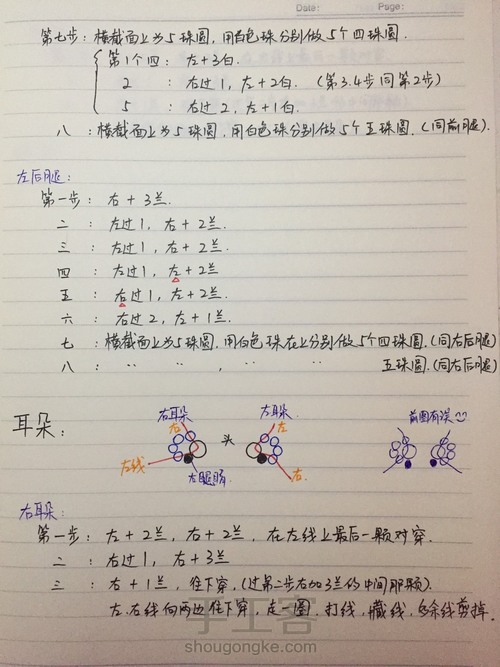 Date: Page:
第七步:横截面上为5珠圆,用白色珠分别做5个四珠圆.
第1个四:左+3白.
2 :右过1,左+2白.(第3.4步同第2步)
5 :右过2,左+1白.
八:横截面上为5珠圆,用白色珠分别做5个五珠圆.(同前腿).
左后腿:
第一步:右+3兰.
二:左过1,右+2兰.
三:左过1,右+2兰.
四:左过1,左+2兰
五:右过1,左+2兰.
六:右过2,左+1兰.
七:横截面上为5珠圆.用白色珠在上分别做5个四珠圆.(同右后腿)
八:〃 〃 , 〃 〃 五珠圆.(同右后腿)
耳朵:
右耳朵
右
左线
左腿肠
头
右耳朵
左
右
前图有误
右耳朵:
第一步:左+2兰,右+2兰,在左线上最后一颗对穿.
二:右过1,右+3兰
三:右+1兰,往下穿,(过第二步右加3兰的中间那颗).
左.右线向两边往下穿,走一圈.打线,藏线,多余线剪掉.
手工客
shougongke.com